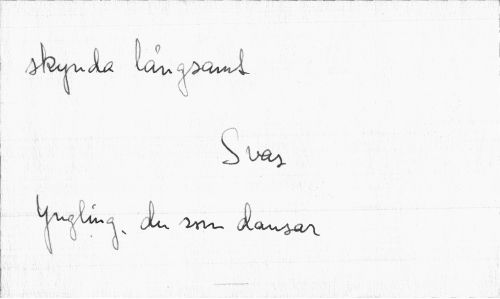 skynda långsamt
Svar
Yngling, du som dansar